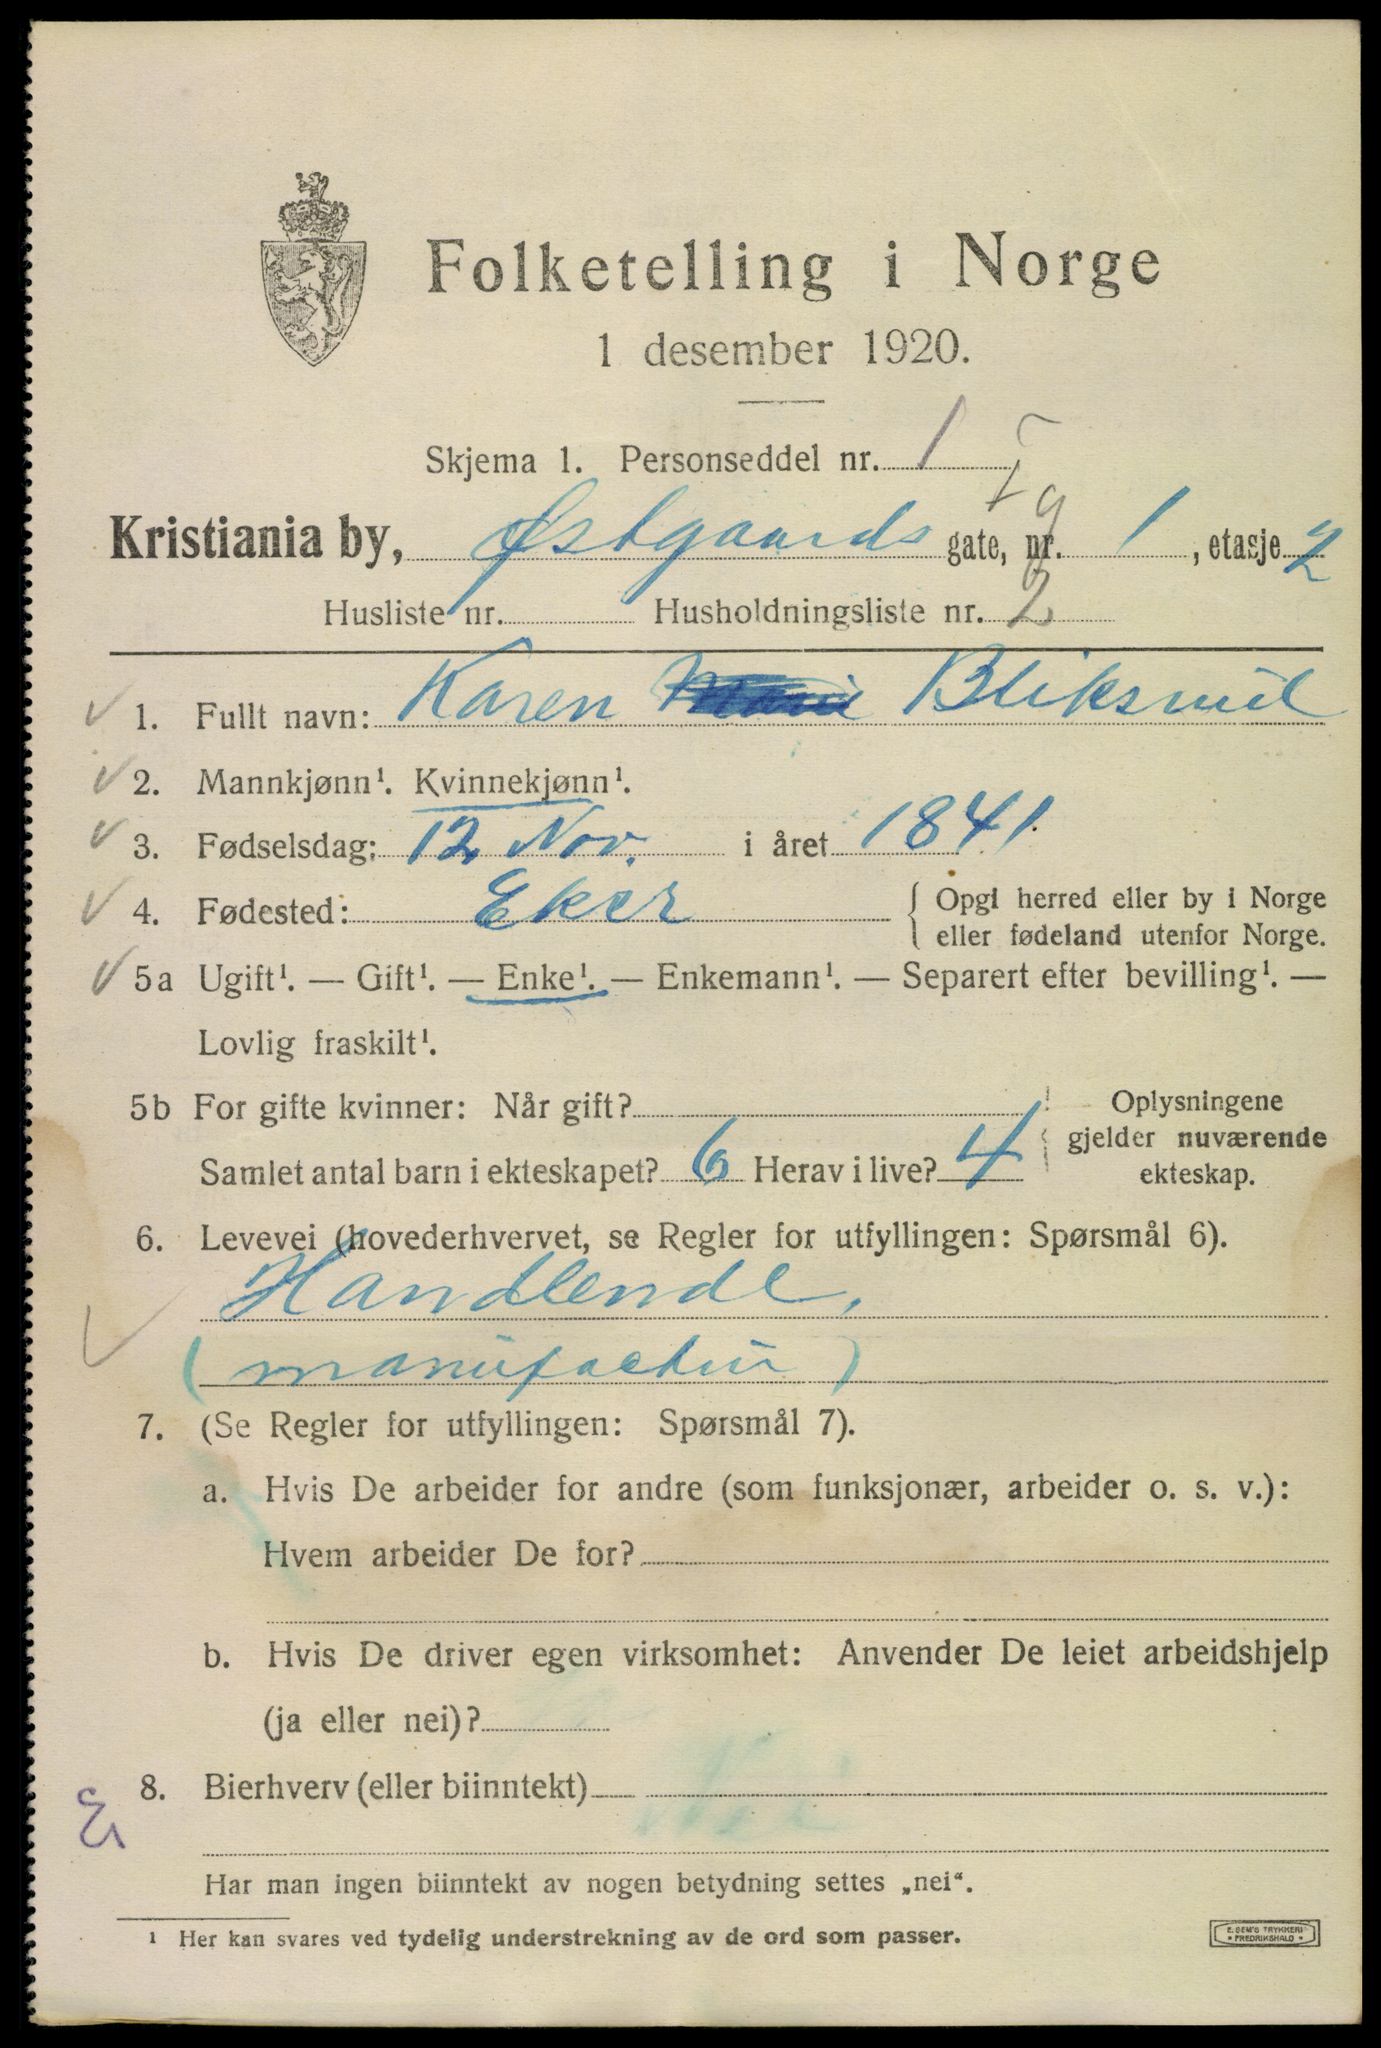 Folketelling i Norge
1 desember 1920.
Skjema 1. Personseddel nr. 1
Kristiania by, Østgaards gate, nr. 1, etasje 2
Husliste nr. Husholdningsliste nr. 2
1. Fullt navn: Karen Marie Bliksmil
2. Mannkjønn¹. Kvinnekjønn¹.
3. Fødselsdag: 12 Nov. i året 1841.
4. Fødested: Eker { Opgi herred eller by i Norge
eller fødeland utenfor Norge.
5a Ugift¹. — Gift¹. — Enke¹. — Enkemann¹. — Separert efter bevilling¹. —
Lovlig fraskilt¹.
5b For gifte kvinner: Når gift? Oplysningene
gjelder nuværende
Samlet antal barn i ekteskapet? 6 Herav i live? 4 ekteskap.
6. Levevei (hovederhvervet, se Regler for utfyllingen: Spørsmål 6).
Handlende,
(manufactur)
7. (Se Regler for utfyllingen: Spørsmål 7).
a. Hvis De arbeider for andre (som funksjonær, arbeider o. s. v.):
Hvem arbeider De for?
b. Hvis De driver egen virksomhet: Anvender De leiet arbeidshjelp
(ja eller nei)?
8. Bierhverv (eller biinntekt) Nei
Har man ingen biinntekt av nogen betydning settes „nei“.
¹ Her kan svares ved tydelig understrekning av de ord som passer.
E. SEM'S TRYKKERI
• FREDRIKSHALD •